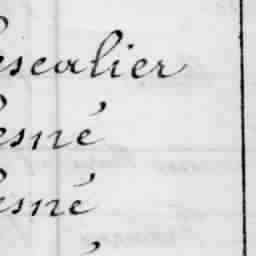 escalier
esné
esné